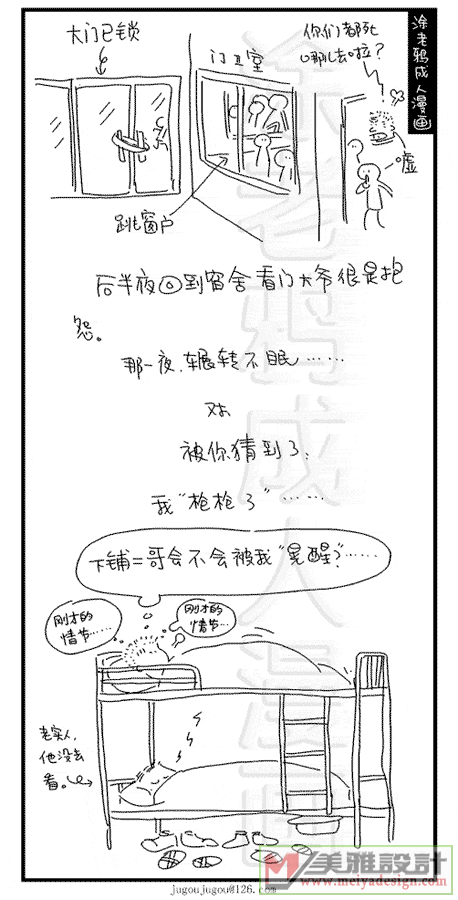 涂老鸦成人漫画
大门已锁
门卫室
你们都死
哪儿去啦?
嘘
跳窗户
后半夜回到宿舍看门大爷很是抱
怨。
那一夜,辗转不眠……
对
被你猜到了,
我“枪枪了”……
下铺二哥会不会被我“晃醒?”……
刚才的
情节……
刚才的
情节…
老实人,
他没去
看。
美雅設計
www.meiyadesign.com
jugoujugou@126.com